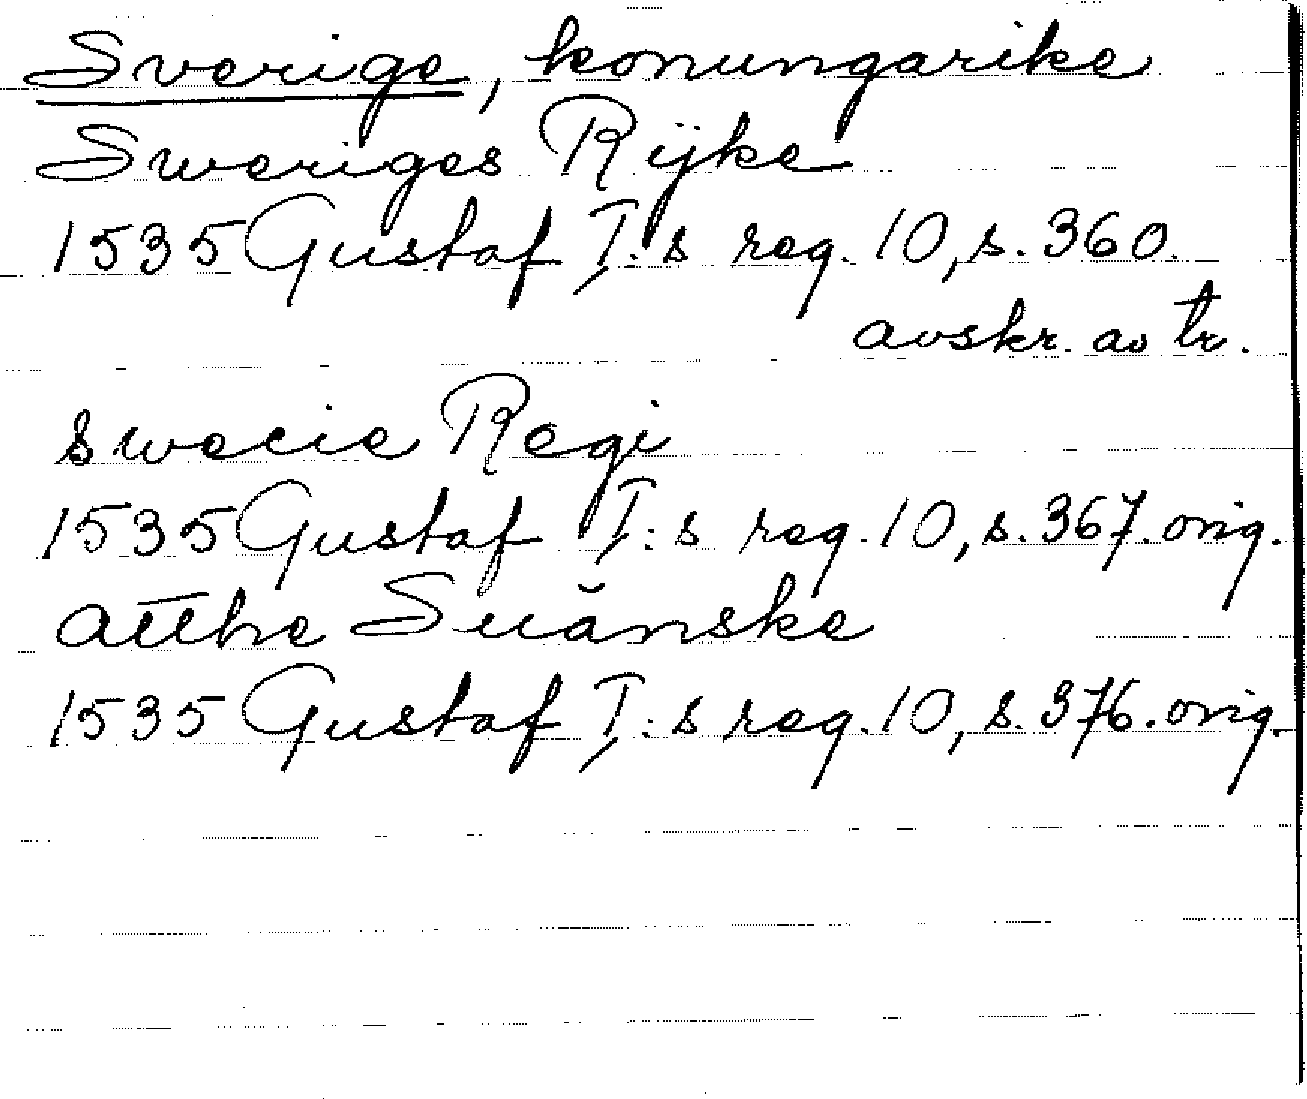 Sverige, konungarike
Sweriges Rijke
1535 Gustaf I:s reg. 10, s. 360.
avskr. av tr.
swecie Regi
1535 Gustaf I:s reg. 10, s. 367. orig.
atthe Suănske
1535 Gustaf I:s reg. 10, s. 376. orig.